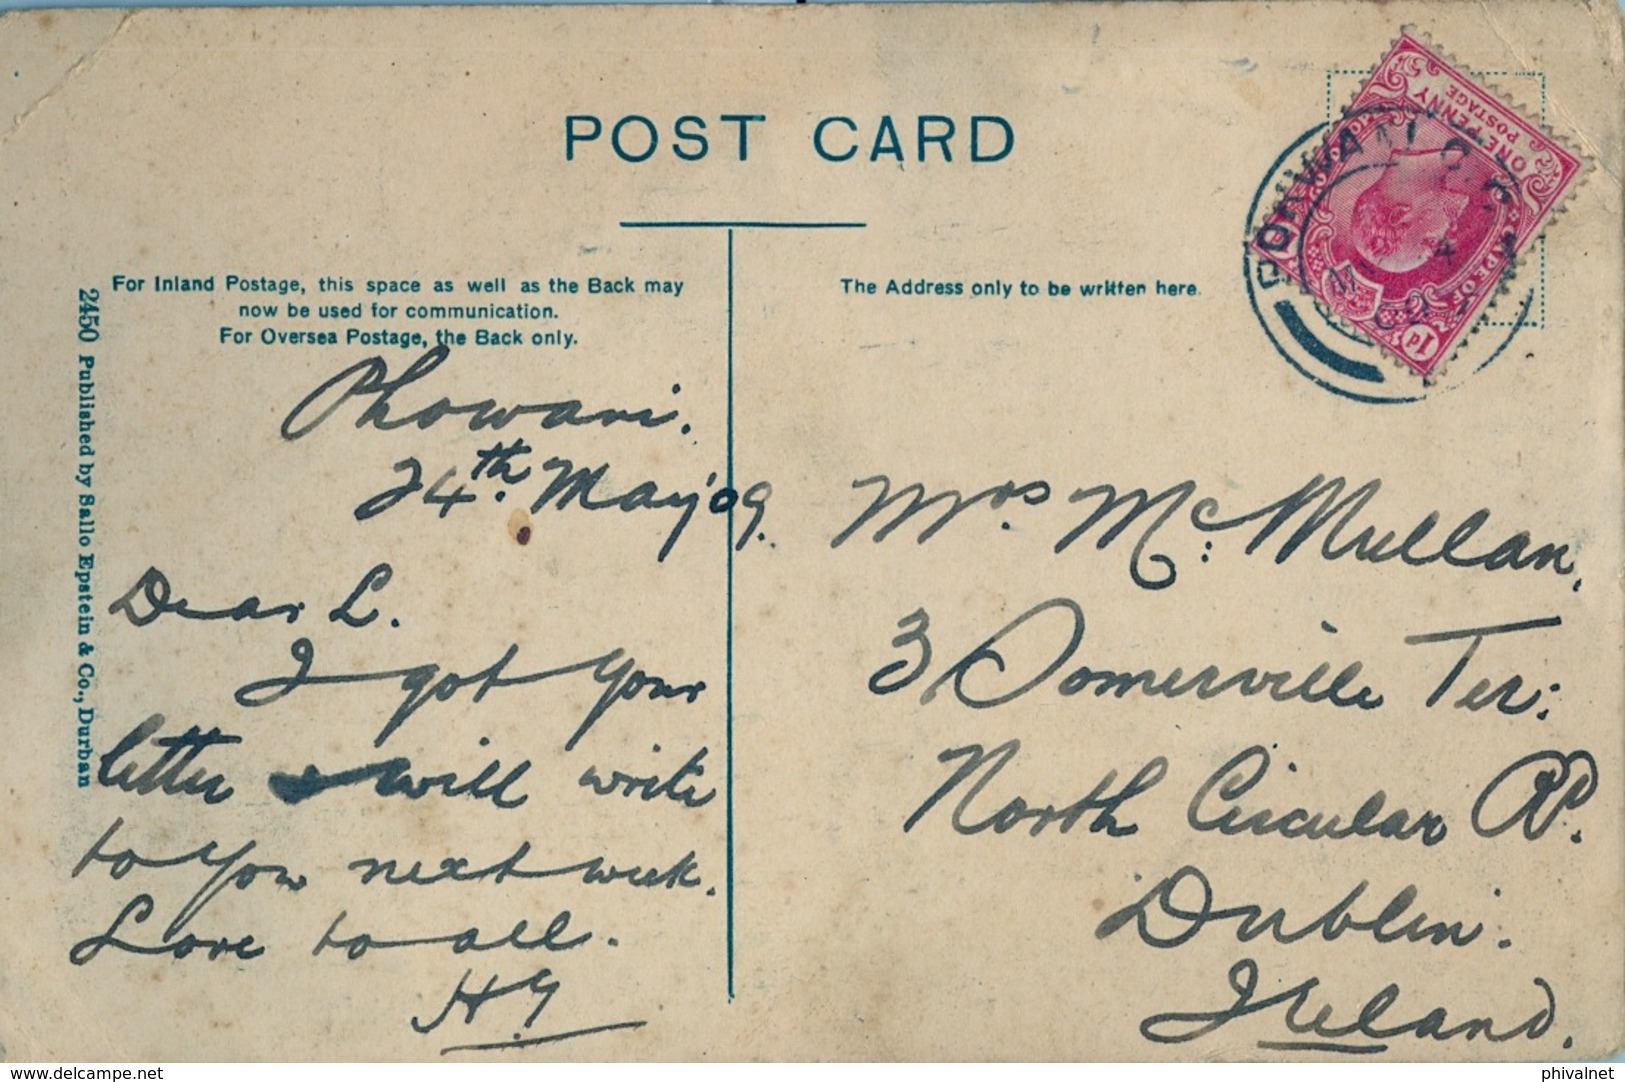 POST CARD
For Inland Postage, this space as well as the Back may
now be used for communication.
For Oversea Postage, the Back only.
The Address only to be written here.
2450 Published by Sallo Epstein & Co., Durban
ONE PENNY
POSTAGE
1d
Phowani.
24th. May '09.
Dear L.
I got your
letter & will write
to you next week.
Love to all.
H.G
Mrs. Mc Mullan,
3 Somerville Ter:
North Circular Rd.
Dublin.
Ireland.
www.delcampe.net
phivalnet